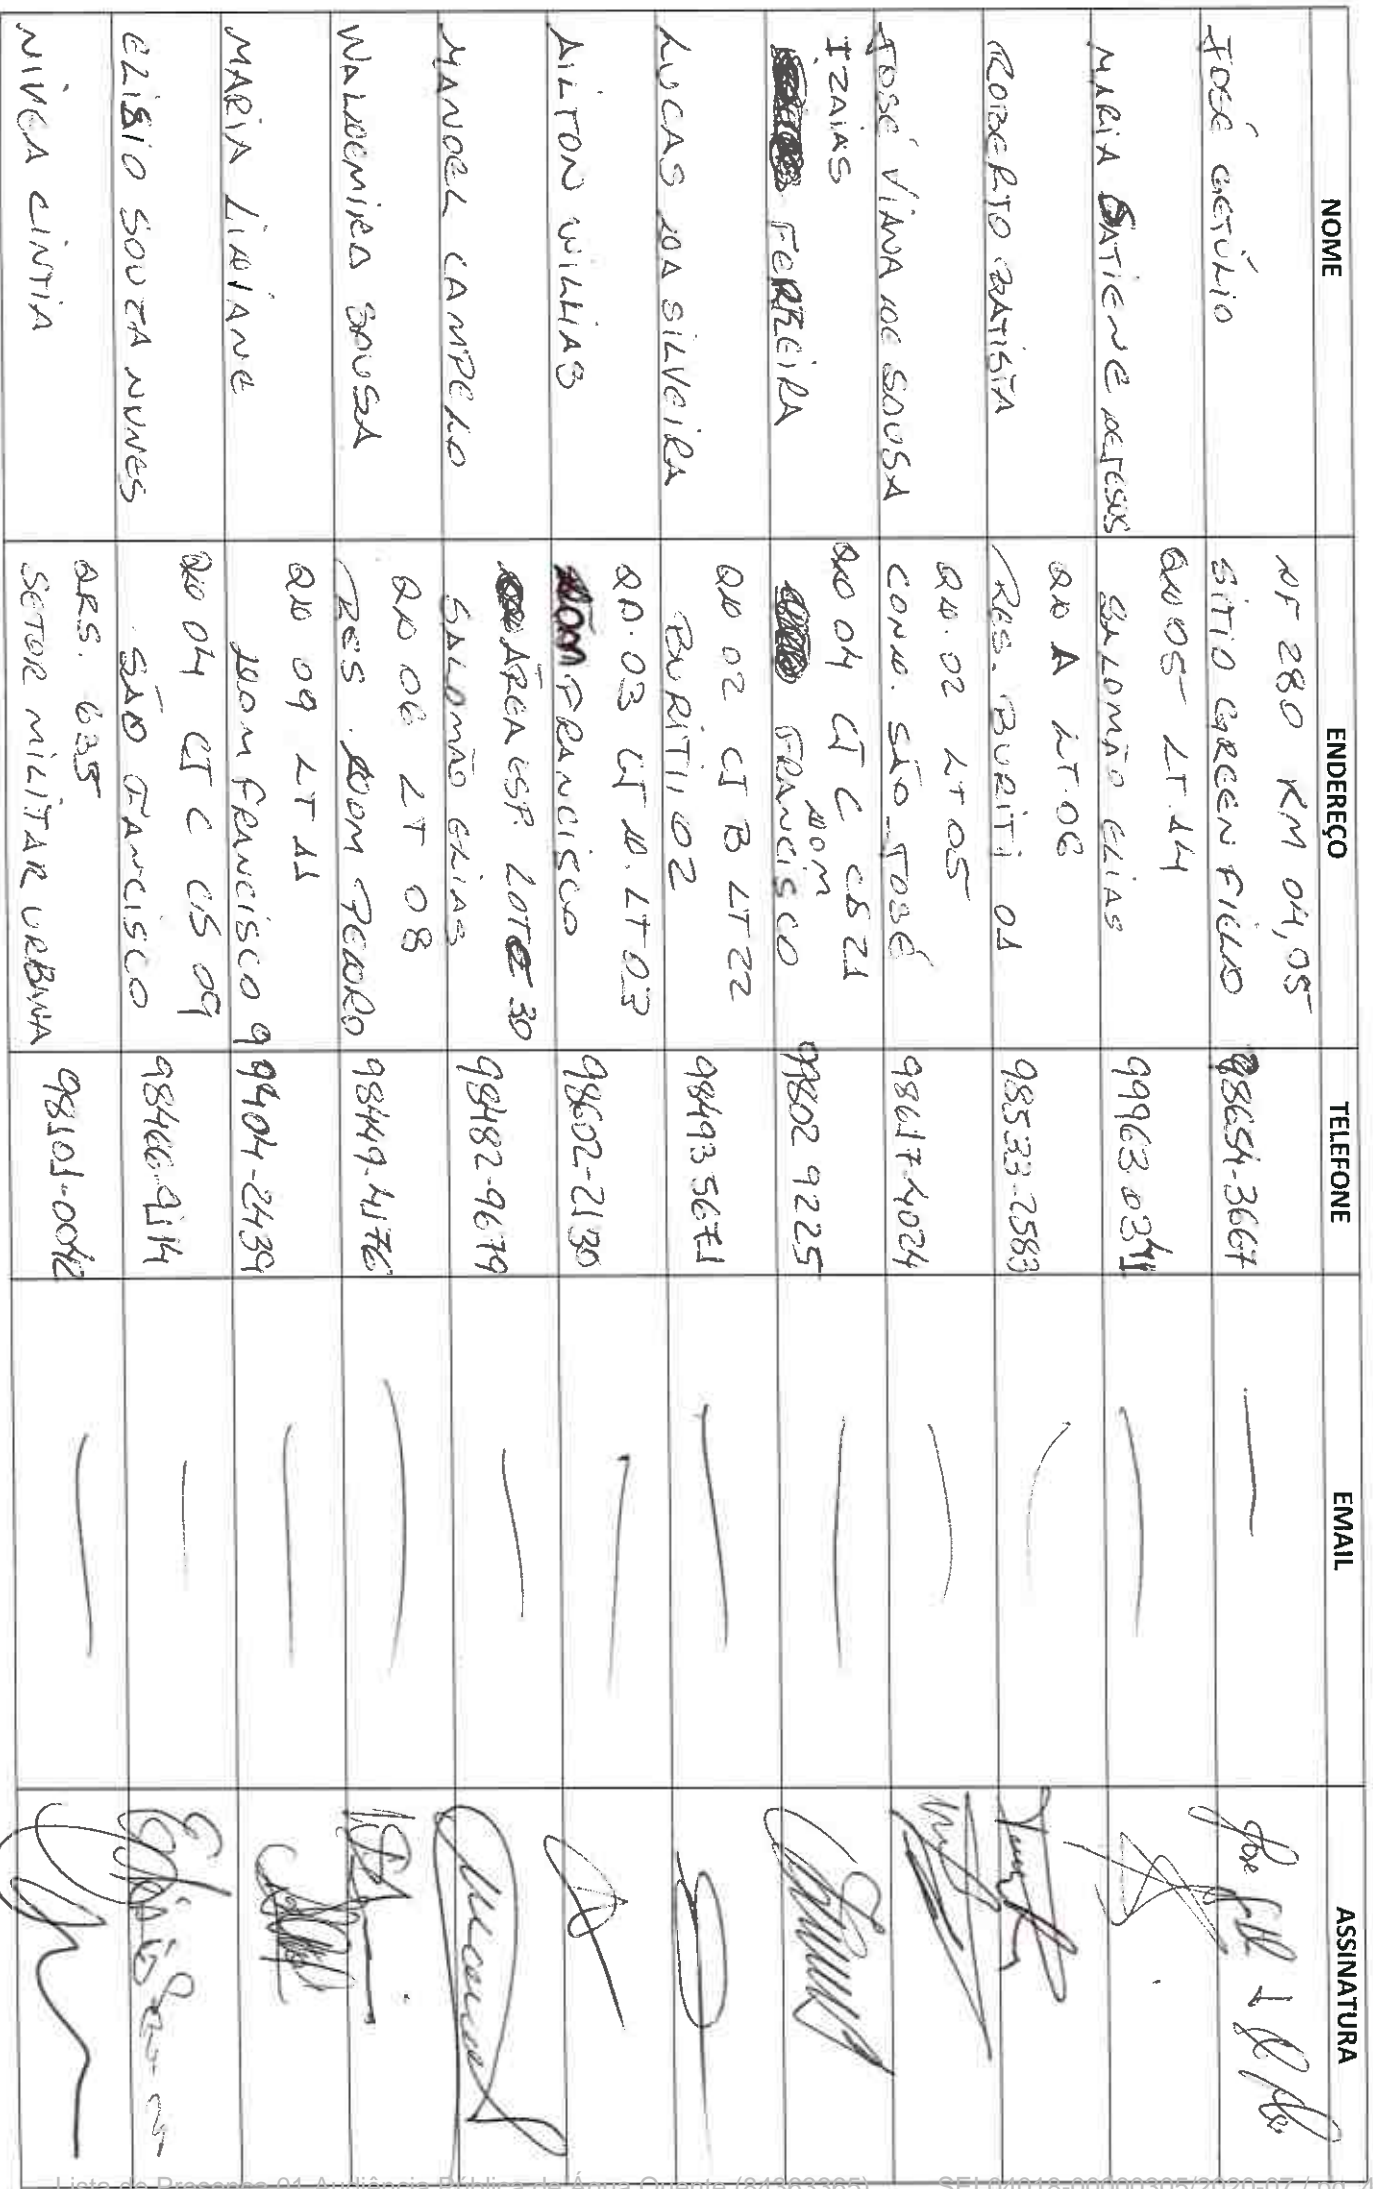 NOME ENDEREÇO TELEFONE EMAIL ASSINATURA
JOSÉ GETÚLIO
NF 280 KM 04,05
SITIO GREEN FIELD
98654-3667
MARIA DETESUS
QD 05 LT 14
SALOMÃO ELIAS
99963
ROBERTO BATISTA
QD A LT.06
RES. BURITI 01
98533-2583
JOSÉ VIANA DE SOUSA
QD.02 LT 05
COND. SÃO JOSÉ
98617-4024
IZAIAS
FERREIRA
QD 04 CJ C CS 21
DOM
FRANCISCO
99802 9225
LUCAS DA SILVEIRA
QD 02 CJ B LT 22
BURITI 02
98493 5671
AILTON WILLIAS
QD.03 CJ D. LT 03
DOM FRANCISCO
98602-2130
MANOEL CAMPELO
ÁREA ESP. LOTE 30
SALOMÃO ELIAS
98482-9679
WALDEMIRO SOUSA
QD 06 LT 08
RES. DOM PEDRO
98449-4176
MARIA LIDIANE
QD 09 LT 11
DOM FRANCISCO
99404-2439
ELISIO SOUZA NUNES
QD 04 CJ C CS 09
SÃO FANCISCO
98466-9114
NIVEA CINTIA
QRS. 635
SETOR MILITAR URBANA
98101-0042
Lista de Presença 01 Audiência Pública de Água Quente